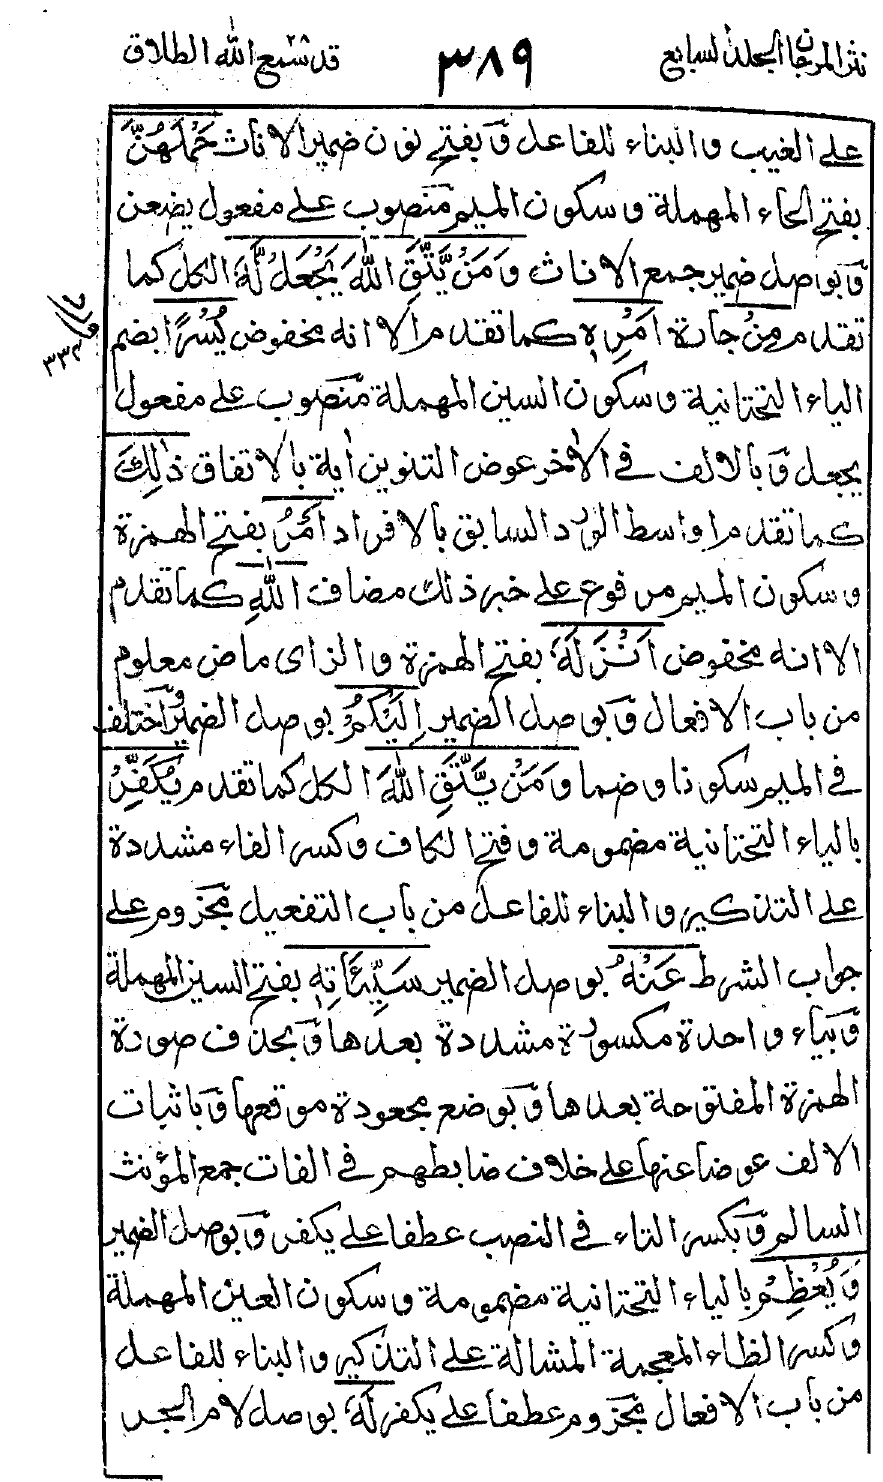 نثر المرجان المجلد السابع
٣٨٩
قد سمع الله ٢٨ الطلاق
على الغيب والبناء للفاعل وبفتح نون ضمير الاناث حَمْلَهُنَّ
بفتح الحاء المهملة وسكون الميم منصوب على مفعول يضعن
وبوصل ضمير جمع الاناث وَمَنْ يَّتَّقِ اللّٰهَ يَجْعَلْ لَّهٗ الكل كما
تقدم مِنْ جارة اَمْرِهٖ كما تقدم الا انه مخفوض يُسْرًا بضم
الياء التحتانية وسكون السين المهملة منصوب على مفعول
يجعل وبالالف في الآخر عوض التنوين اٰية بالاتفاق ذٰلِكَ
كما تقدم اواسط الورد السابق بالافراد اَمْرُ بفتح الهمزة
وسكون الميم مرفوع على خبر ذلك مضاف اللّٰهِ كما تقدم
الا انه مخفوض اَنْزَلَهٗ بفتح الهمزة والزاى ماض معلوم
من باب الافعال وبوصل الضمير اِلَيْكُمْ بوصل الضمير واختلف
في الميم سكونا وضما وَمَنْ يَّتَّقِ اللّٰهَ الكل كما تقدم يُكَفِّرْ
بالياء التحتانية مضمومة وفتح الكاف وكسر الفاء مشددة
على التذكير والبناء للفاعل من باب التفعيل مجزوم على
جواب الشرط عَنْهُ بوصل الضمير سَيِّئَاتِهٖ بفتح السين المهملة
وبياء واحدة مكسورة مشددة بعدها وبحذف صورة
الهمزة المفتوحة بعدها وبوضع مجعودة موقعها وباثبات
الالف عوضا عنها على خلاف ضابطهم في الفات جمع المؤنث
السالم وبكسر التاء في النصب عطفا على يكفر وبوصل الضمير
وَيُعْظِمْ بالياء التحتانية مضمومة وسكون العين المهملة
وكسر الظاء المعجمة المشالة على التذكير والبناء للفاعل
من باب الافعال مجزوم عطفا على يكفر لَهٗ بوصل لام الجر